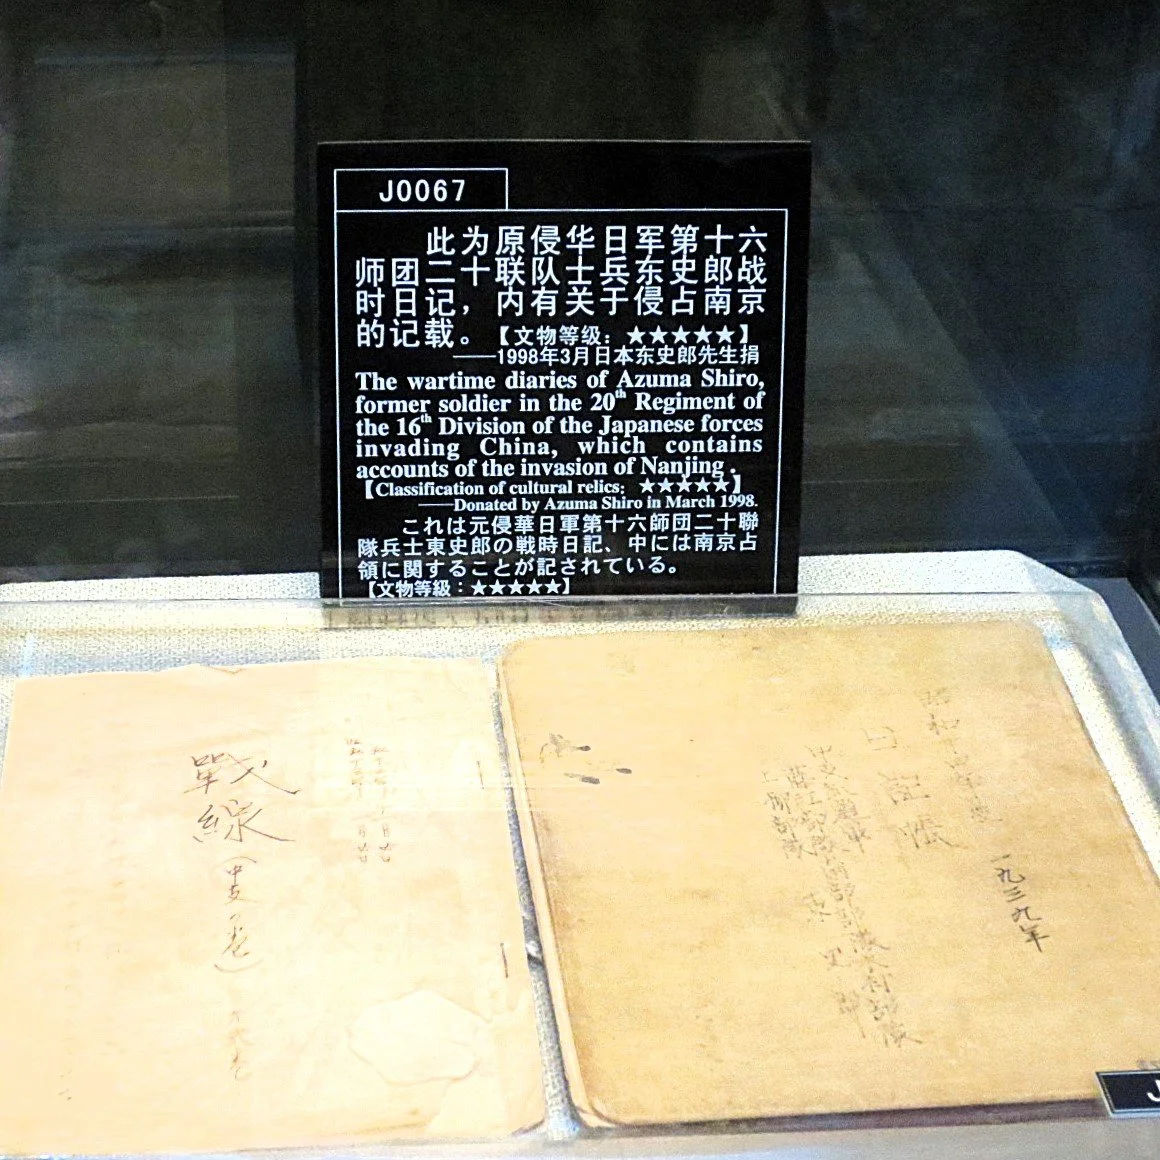 J0067
此为原侵华日军第十六
师团二十联队士兵东史郎战
时日记，内有关于侵占南京
的记载。【文物等级：★★★★★】
——1998年3月日本东史郎先生捐
The wartime diaries of Azuma Shiro,
former soldier in the 20th Regiment of
the 16th Division of the Japanese forces
invading China, which contains
accounts of the invasion of Nanjing .
【Classification of cultural relics：★★★★★】
——Donated by Azuma Shiro in March 1998.
これは元侵華日軍第十六師団二十聯
隊兵士東史郎の戦時日記、中には南京占
領に関することが記されている。
【文物等級：★★★★★】
戰
線
一九三九年
昭和十四年度
日記帳
東史郎
J